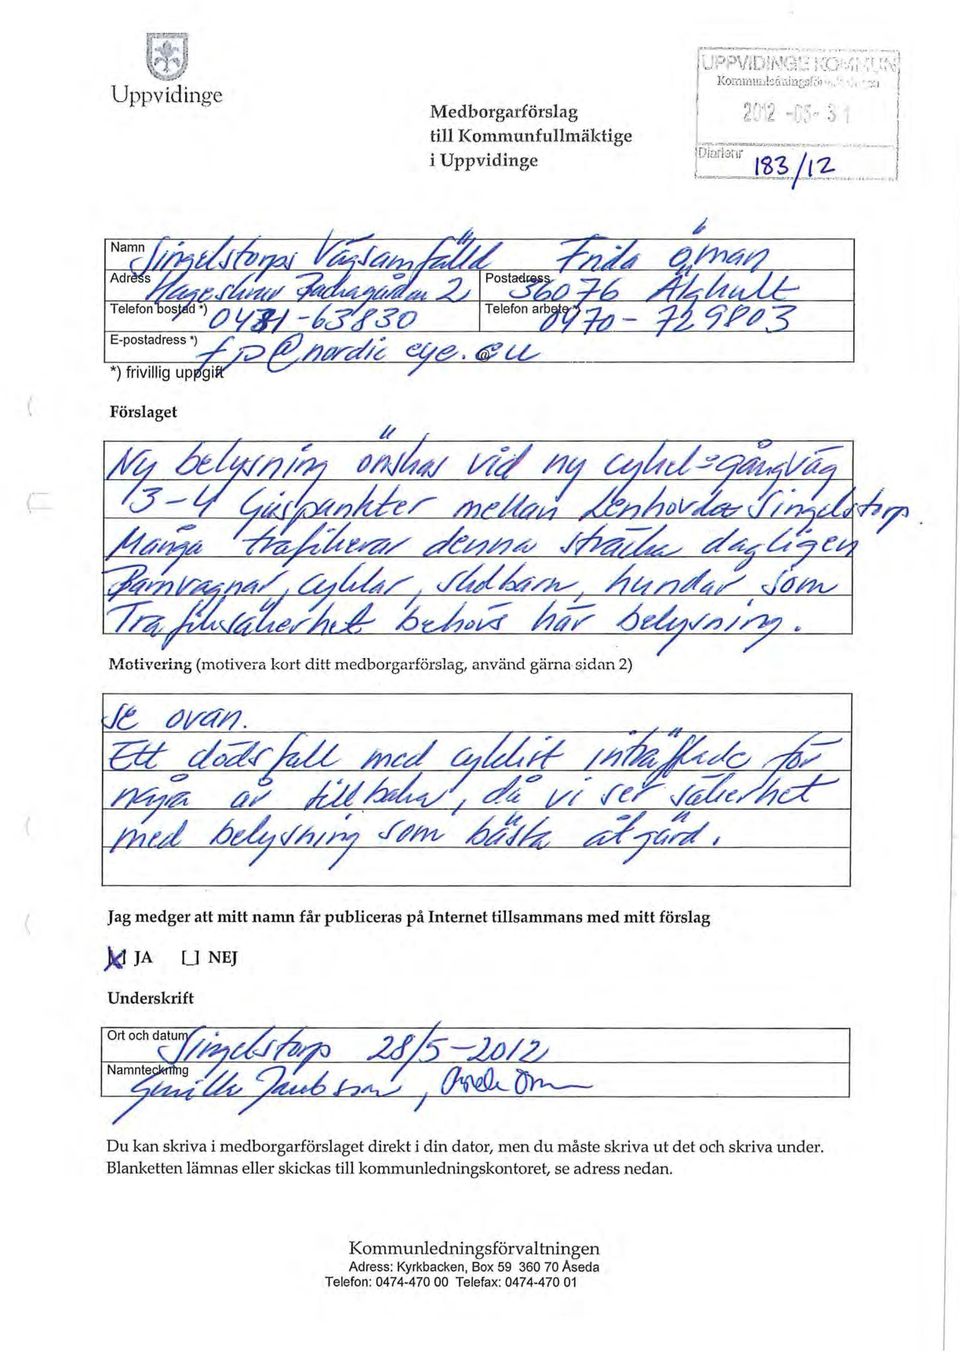 Uppvidinge
Medborgarförslag
till Kommunfullmäktige
i Uppvidinge
UPPVIDINGE KOMMUN
2012 -05- 31
Diarienr
183/12
Namn Singelstorps Vägsamfälld Frida Öman
Adress Hageskruv 2 Postadress 36076 Älghult
Telefon bostad *) -63830 Telefon arbete *) 0470-729803
E-postadress *) fjo@nordic eye.eu
*) frivillig uppgift
Förslaget
Ny belysning önskas vid ny cykel-gångväg
3-4 Ljuspunkter mellan Lenhovda Singelstorp.
Många trafikerar denna sträcka dagligen
Barnvagnar, cyklar, skolbarn, hundar som
Trafiksäkerhet behövs här belysning.
Motivering (motivera kort ditt medborgarförslag, använd gärna sidan 2)
Se ovan.
Ett dödsfall med cyklist inträffade för
några år tillbaka, då vi ser säkerhet
med belysning som bästa åtgärd.
Jag medger att mitt namn får publiceras på Internet tillsammans med mitt förslag
JA NEJ
Underskrift
Ort och datum Singelstorp 28/5-2012
Namnteckning Gunilla Jacobsson,
Du kan skriva i medborgarförslaget direkt i din dator, men du måste skriva ut det och skriva under.
Blanketten lämnas eller skickas till kommunledningskontoret, se adress nedan.
Kommunledningsförvaltningen
Adress: Kyrkbacken, Box 59 360 70 Åseda
Telefon: 0474-470 00 Telefax: 0474-470 01